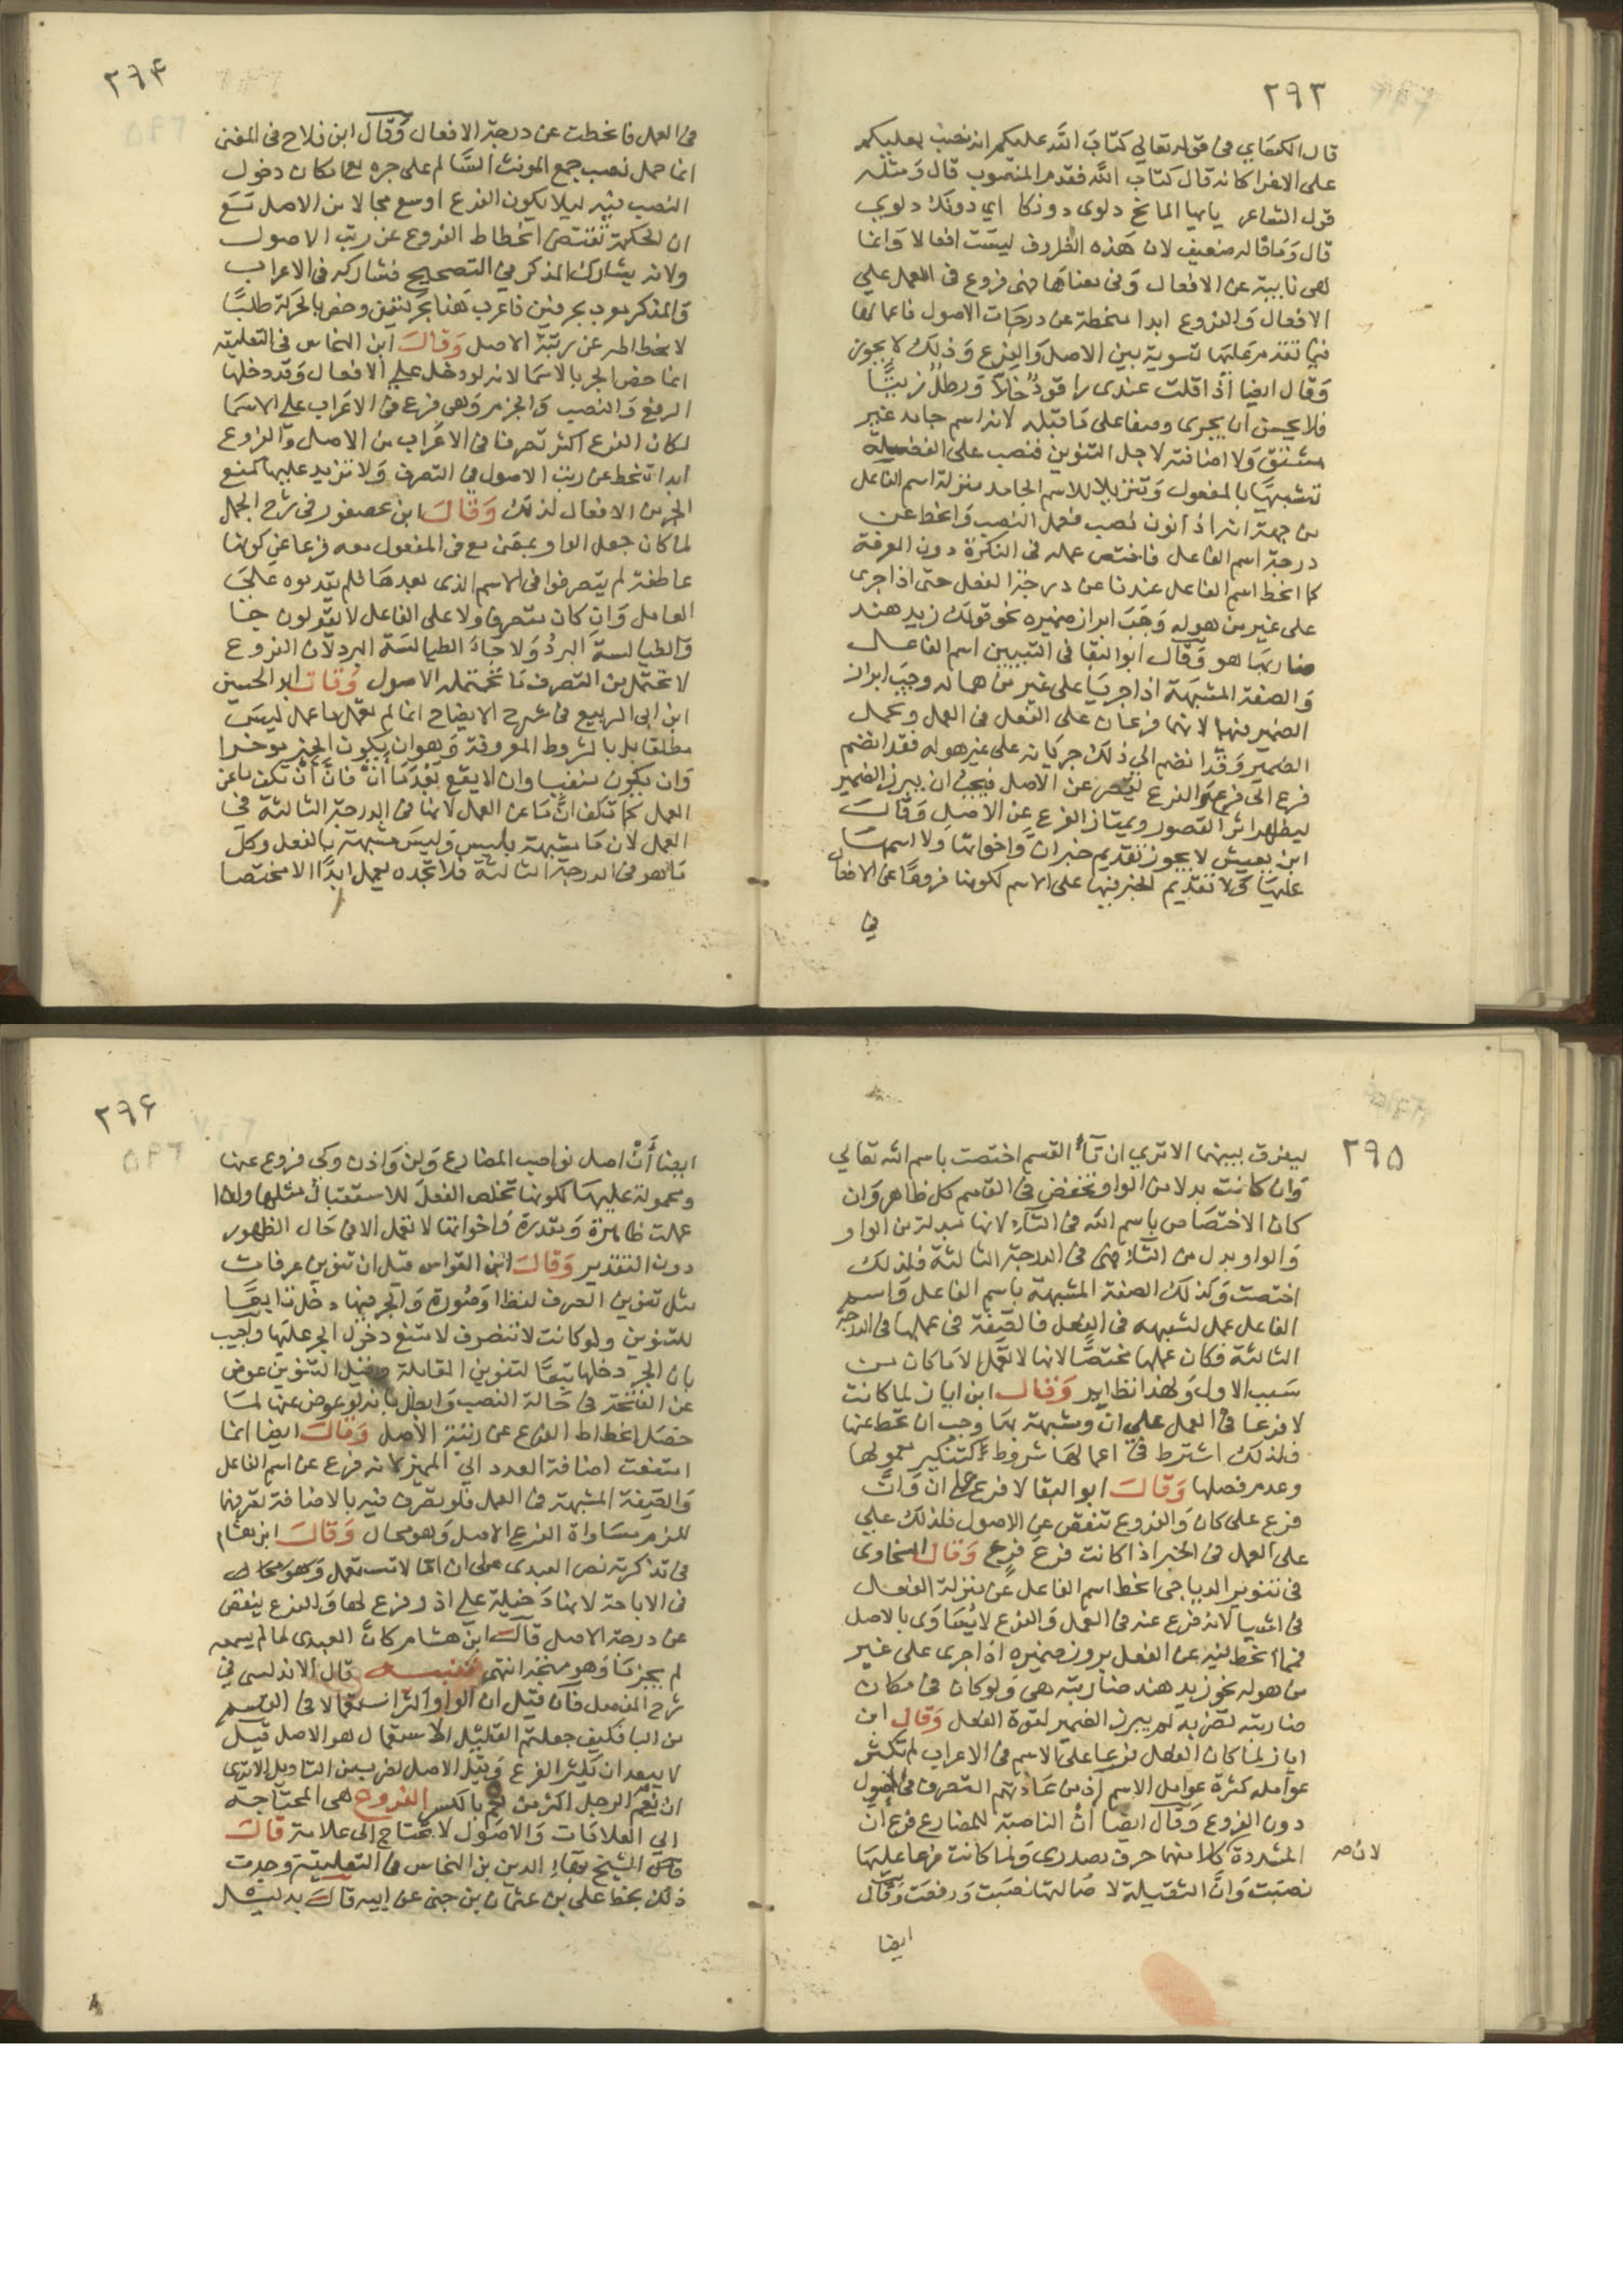 ٢٩٣
قال الكساي في قوله تعالي كتاب الله عليكم انه نصب بعليكم
على الاغرا كانه قال كتاب الله فقدم المنصوب قال ومثله
قول الشاعر يايها المائح دلوى دونكا اي دونك دلوي
قال وما قاله ضعيف لان هذه الظروف ليست افعالا وانما
هي نايبة عن الافعال وفي معناها فهي فروع في العمل علي
الافعال والفروع ابدا منحطة عن درجات الاصول فاعمالها
فيما تقدم عليها تسوية بين الاصل والفرع وذلك لا يجوز
وقال ايضا اذا قلت عندى راقود خلا ورطل زيتا
فلا يحسن ان يجرى وصفا على ما قبله لانه اسم جامد غير
مشتق ولا اضافته لاجل التنوين فنصب على الفضلة
تشبيها بالمفعول وتنزيلا للاسم الجامد منزلة اسم الفاعل
من جهة انه اذا نون نصب فعمل النصب وانحط عن
درجة اسم الفاعل فاختص عمله في النكرة دون المعرفة
كما انحط اسم الفاعل عندنا عن درجة الفعل حتى اذا جرى
على غير من هو له وجب ابراز ضميره نحو قولك زيد هند
ضاربها هو وقال ابو البقا في التبيين اسم الفاعل
والصفة المشبهة اذا جريا على غير من هما له وجب ابراز
الضمير فيهما لانهما فرعان على الفعل في العمل وتحمل
الضمير وقد انضم الي ذلك جريانه على غير من هو له فقد انضم
فرع الى فرع والفرع يقصر عن الاصل فيجب ان يبرز الضمير
ليظهر اثر القصور ويمتاز الفرع عن الاصل وقال
ابن يعيش لا يجوز تقديم خبر ان واخواتها ولا اسمها
عليها ولا تقديم الخبر فيها على الاسم لكونها فروعا عن الافعال
في
٢٩٤
في العمل فانحطت عن درجة الافعال وقال ابن فلاح في المغني
انما حمل نصب جمع المونث السالم على جره مع امكان دخول
النصب فيه ليلا يكون الفرع اوسع مجالا من الاصل مع
ان الحكمة تقتضي انحطاط الفروع عن رتب الاصول
ولانه يشارك المذكر في التصحيح فشاركه في الاعراب
والمذكر معرب بحرفين فاعرب هذا بحركتين وخص بالحركة طلبا
لانحطاطه عن رتبة الاصل وقال ابن النحاس في التعليقة
انما خص الجر بالاسما لانه لو دخل علي الافعال وقد دخلها
الرفع والنصب والجزم وهي فرع في الاعراب على الاسما
لكان الفرع اكثر تصرفا في الاعراب من الاصل والفروع
ابدا تنحط عن رتب الاصول في التصرف ولا تزيد عليها فمنع
الجر من الافعال لذلك وقال ابن عصفور في شرح الجمل
لما كان جعل الواو بمعنى مع في المفعول معه فرعا عن كونها
عاطفة لم يتصرفوا في الاسم الذى بعدها فلم يقدموه على
العامل وان كان متصرفا ولا على الفاعل لا يقولون
والطيالسة البرد ولا جاء الطيالسة البرد لان الفروع
لا تحتمل من التصرف ما تحتمله الاصول وقال ابو الحسين
ابن ابي الربيع في شرح الايضاح انما لم تعمل ما عمل ليس
مطلقا بل بالشروط المعروفة وهو ان يكون الخبر موخرا
وان يكون منفيا وان لا يقع بعد ما ان فان ان تكف ما عن
العمل كما تكف ان ما عن العمل لانها في الدرجة الثالثة في
العمل لان ما مشبهة بليس وليس مشبهة بالفعل وكل
ما هو في الدرجة الثالثة فلا تجده يعمل ابدا الا مختصا
٢٩٥
ليفرق بينهما الا تري ان تاء القسم اختصت باسم الله تعالي
وان كانت بدلا من الواو تخفض في القسم كل ظاهر وان
كان الاختصاص باسم الله في التاء لانها مبدلة من الواو
والواو بدل من الباء فهي في الدرجة الثالثة فلذلك
اختصت وكذلك الصفة المشبهة باسم الفاعل واسم
الفاعل عمل لشبهه في الفعل فالصفة في عملها في الدرجة
الثالثة فكان عملها مختصا لانها لا تعمل الا ما كان من
سبب الاول ولهذا نظاير وقال ابن اياز لما كانت
لا فرعا في العمل علي ان ومشبهة بها وجب ان تنحط عنها
فلذلك اشترط في اعمالها شروط كتنكير معمولها
وعدم فصلها وقال ابو البقا لا فرع على ان وان
فرع على كان والفروع تنقص عن الاصول فلذلك علي
على العمل في الخبر اذا كانت فرع فرع وقال السخاوى
في تنوير الدياجي انحط اسم الفاعل عن منزلة الفعل
في اشيا لانه فرع عنه في العمل والفرع لا يساوى بالاصل
فمما انحط فيه عن الفعل بروز ضميره اذا جرى على غير
من هو له نحو زيد هند ضاربته هي ولو كان في مكان
ضاربته تضربه لم يبرز الضمير لقوة الفعل وقال ابن
اياز لما كان الفعل فرعا على الاسم في الاعراب لم تكثر
عوامله كثرة عوامل الاسم اذ من عادتهم التصرف في الاصول
دون الفروع وقال ايضا ان الناصبة للمضارع فرع ان
المشددة كلا منهما حرف مصدري ولما كانت فرعا عليها
لان صـ
نصبت وان الثقيلة لاصالتها نصبت ورفعت وقال
ايضا
٢٩٦
ايضا أن اصل نواصب المضارع ولن واذن وكي فروع عنها
ومحمولة عليها لكونها تخلص الفعل للاستقبال مثلها ولذا
عملت ظاهرة ومقدرة واخواتها لا تعمل الا في حال الظهور
دون التقدير وقال ابن القواس قيل ان تنوين عرفات
مثل تنوين الصرف لفظا وصورة والجر فيها دخل تابعا
للتنوين ولو كانت لا تنصرف لامتنع دخول الجر عليها واجيب
بان الجر دخلها تبعا لتنوين المقابلة وقيل التنوين عوض
عن الفتحة في حالة النصب وابطل بانه لو عوض عنها لما
حصل انحطاط الفرع عن رتبة الاصل وقال ايضا انما
امتنعت اضافة العدد الي المميز لانه فرع عن اسم الفاعل
والصفة المشبهة في العمل فلو تصرف فيه بالاضافة تصرفها
للزم مساواة الفرع الاصل وهو محال وقال ابن هشام
في تذكرته نص العبدى على ان اما لا تستعمل وهو محال
في الاباحة لانها دخيلة علي او وفرع لها والفرع ينقص
عن درجة الاصل قال ابن هشام كان العبدى لما لم يسمعه
لم يجزه وهو متجه انتهى تنبيه قال الاندلسي في
شرح المفصل فان قيل ان الواو اكثر استعمالا في القسم
من البا فكيف جعلتم القليل الاستعمال هو الاصل قيل
لا يبعد ان يكثر الفرع ويقل الاصل لضرب من التاويل الا ترى
ان نعم الرجل اكثر من نعم بالكسر الفروع هي المحتاجة
الي العلامات والاصول لا تحتاج الى علامة قال
قال الشيخ بهاء الدين بن النحاس في التعليقة وجدت
ذلك بخط علي بن عثمان بن جني عن ابيه قال بدليل